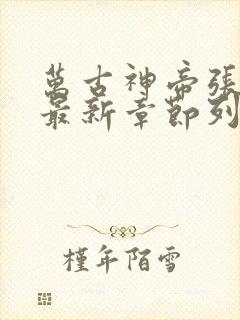 萬古神帝張
最新章節列
槿年陌雪